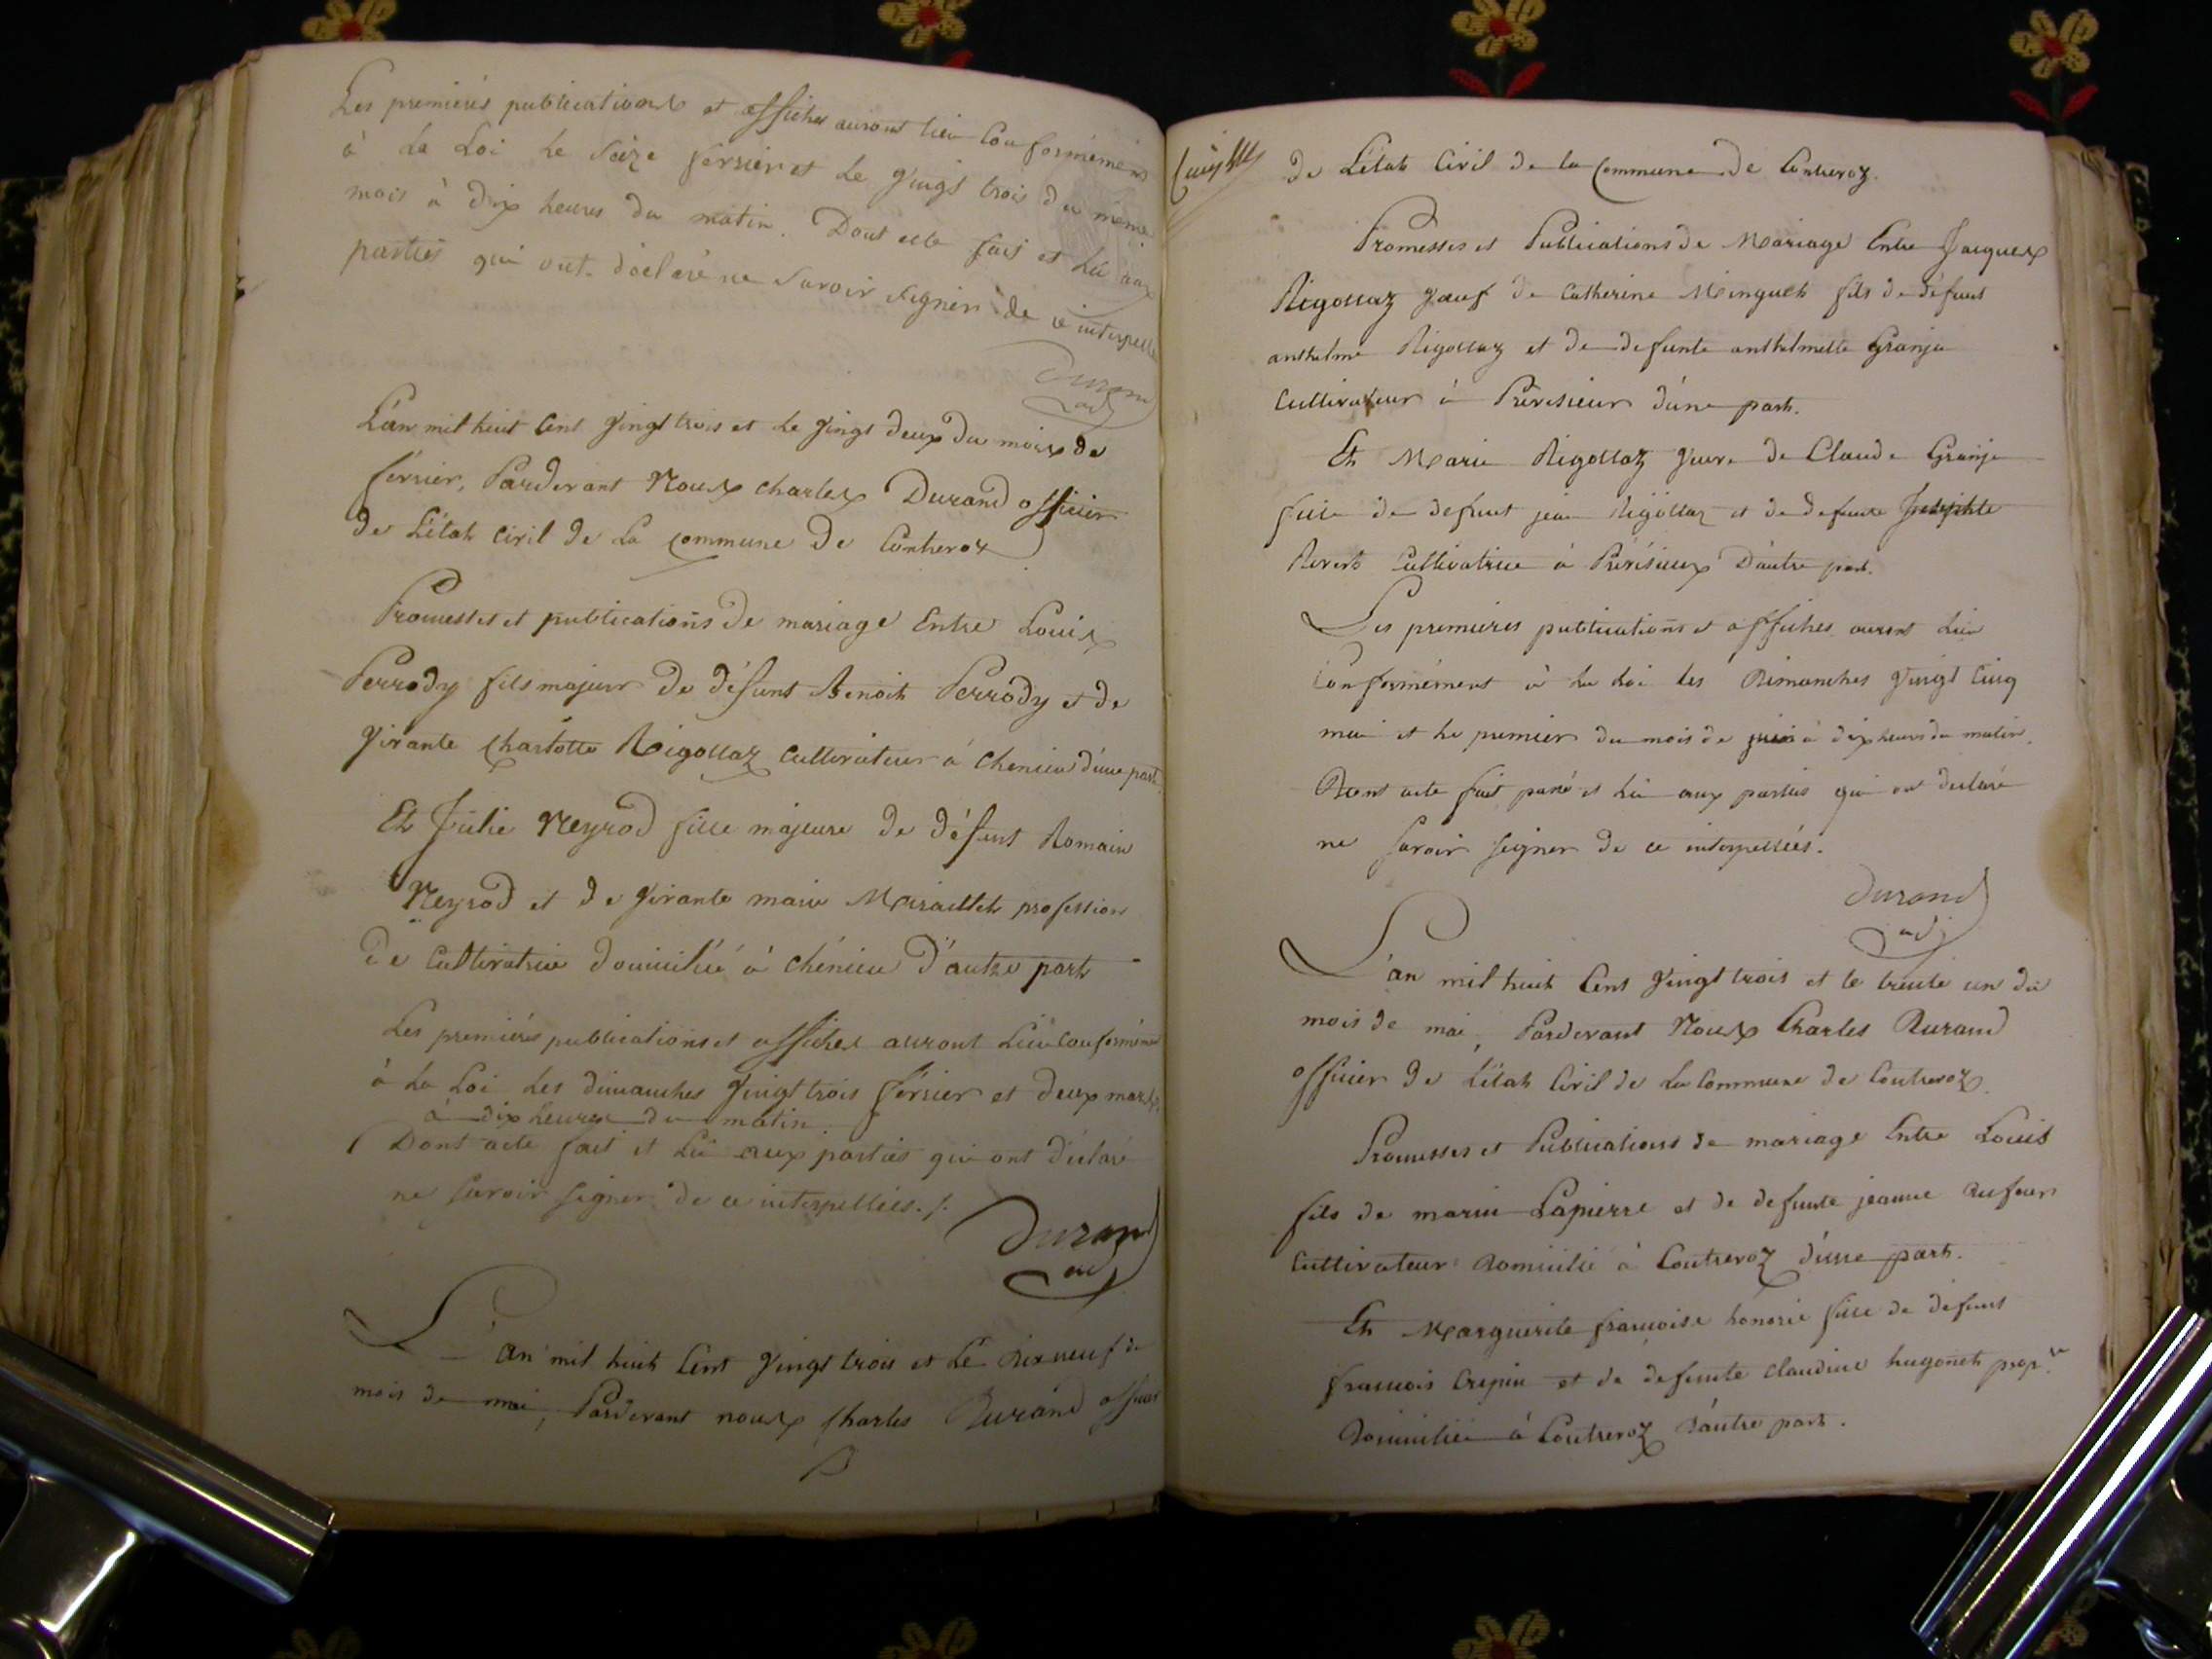 Les premierès publications et affiches auront lieu Conformément
à la Loi le Seize fevrier et le Vingt trois du même
mois à dix heures du matin. Dont acte fait et Lu aux
parties qui ont déclaré ne Savoir signer de ce interpellé
Durand
adj
L'an mil huit Cent Vingt trois et le Vingt deux du mois de
févrièr, Pardevant Nous charles Durand officier
de L'état civil de La commune De Contrevoz
Promesses et publications de mariage Entre Louis
Perrody fils majeur de défunt Benoit Perrody et de
Vivante Charlotte Rigollaz Cultivateur à chemieu d'une part.
Et Julie Neyrod fille majeure de défunt Romain
Neyrod et de Vivante marie Miraillet profession
de Cultivatrice domiciliée à chémieu D'autre part
Les premierès publications et affiches auront Lieu conformément
à la Loi les dimanches Vingt trois févrièr et deux mars
à dix heures du matin.
Dont acte fait et Lu aux parties qui ont déclaré
ne Savoir signer de ce interpellées ./.
Durand
adj
L'an mil huit Cent Vingt trois et Le Dix neuf du
mois de mai, Pardevant nous Charles Durand officier
de L'état Civil de la Commune de Contrevoz.
Promesses et Publications de Mariage Entre Jacques
Rigollaz Vœuf de Catherine Minguet fils de défunt
anthelme Rigollaz et de defunte anthelmette Granje
Cultivateur à Prévesieux d'une part.
Et Marie Rigollaz Veuve de Claude Granje
fille de defunt jean Rigollaz et de defunte Josephte
Revert Cultivatrice à Prévésieux D'autre part.
Les premieres publications et affiches auront Lieu
Conformément à la Loi les Dimanches Vingt Cinq
mai et le premier du mois de juin à dix heures du matin.
Dont acte fait passé et Lu aux parties qui ont declaré
ne Savoir signer de ce interpellées.
Durand
adj
L'an mil huit Cent Vingt trois et le trente un du
mois de mai, Pardevant Nous Charles Durand
officier de L'état Civil de La Commune de Contrevoz.
Promesses et Publications de mariage Entre Louis
fils de marin Lapierre et de defunte jeanne Dufour
Cultivateur Domicilié à Contrevoz d'une part.
Et Marguerite francoise honorie fille de défunt
francois Crepin et de defunte Claudine hugonet prop.re
Domiciliée à Contrevoz D'autre part.